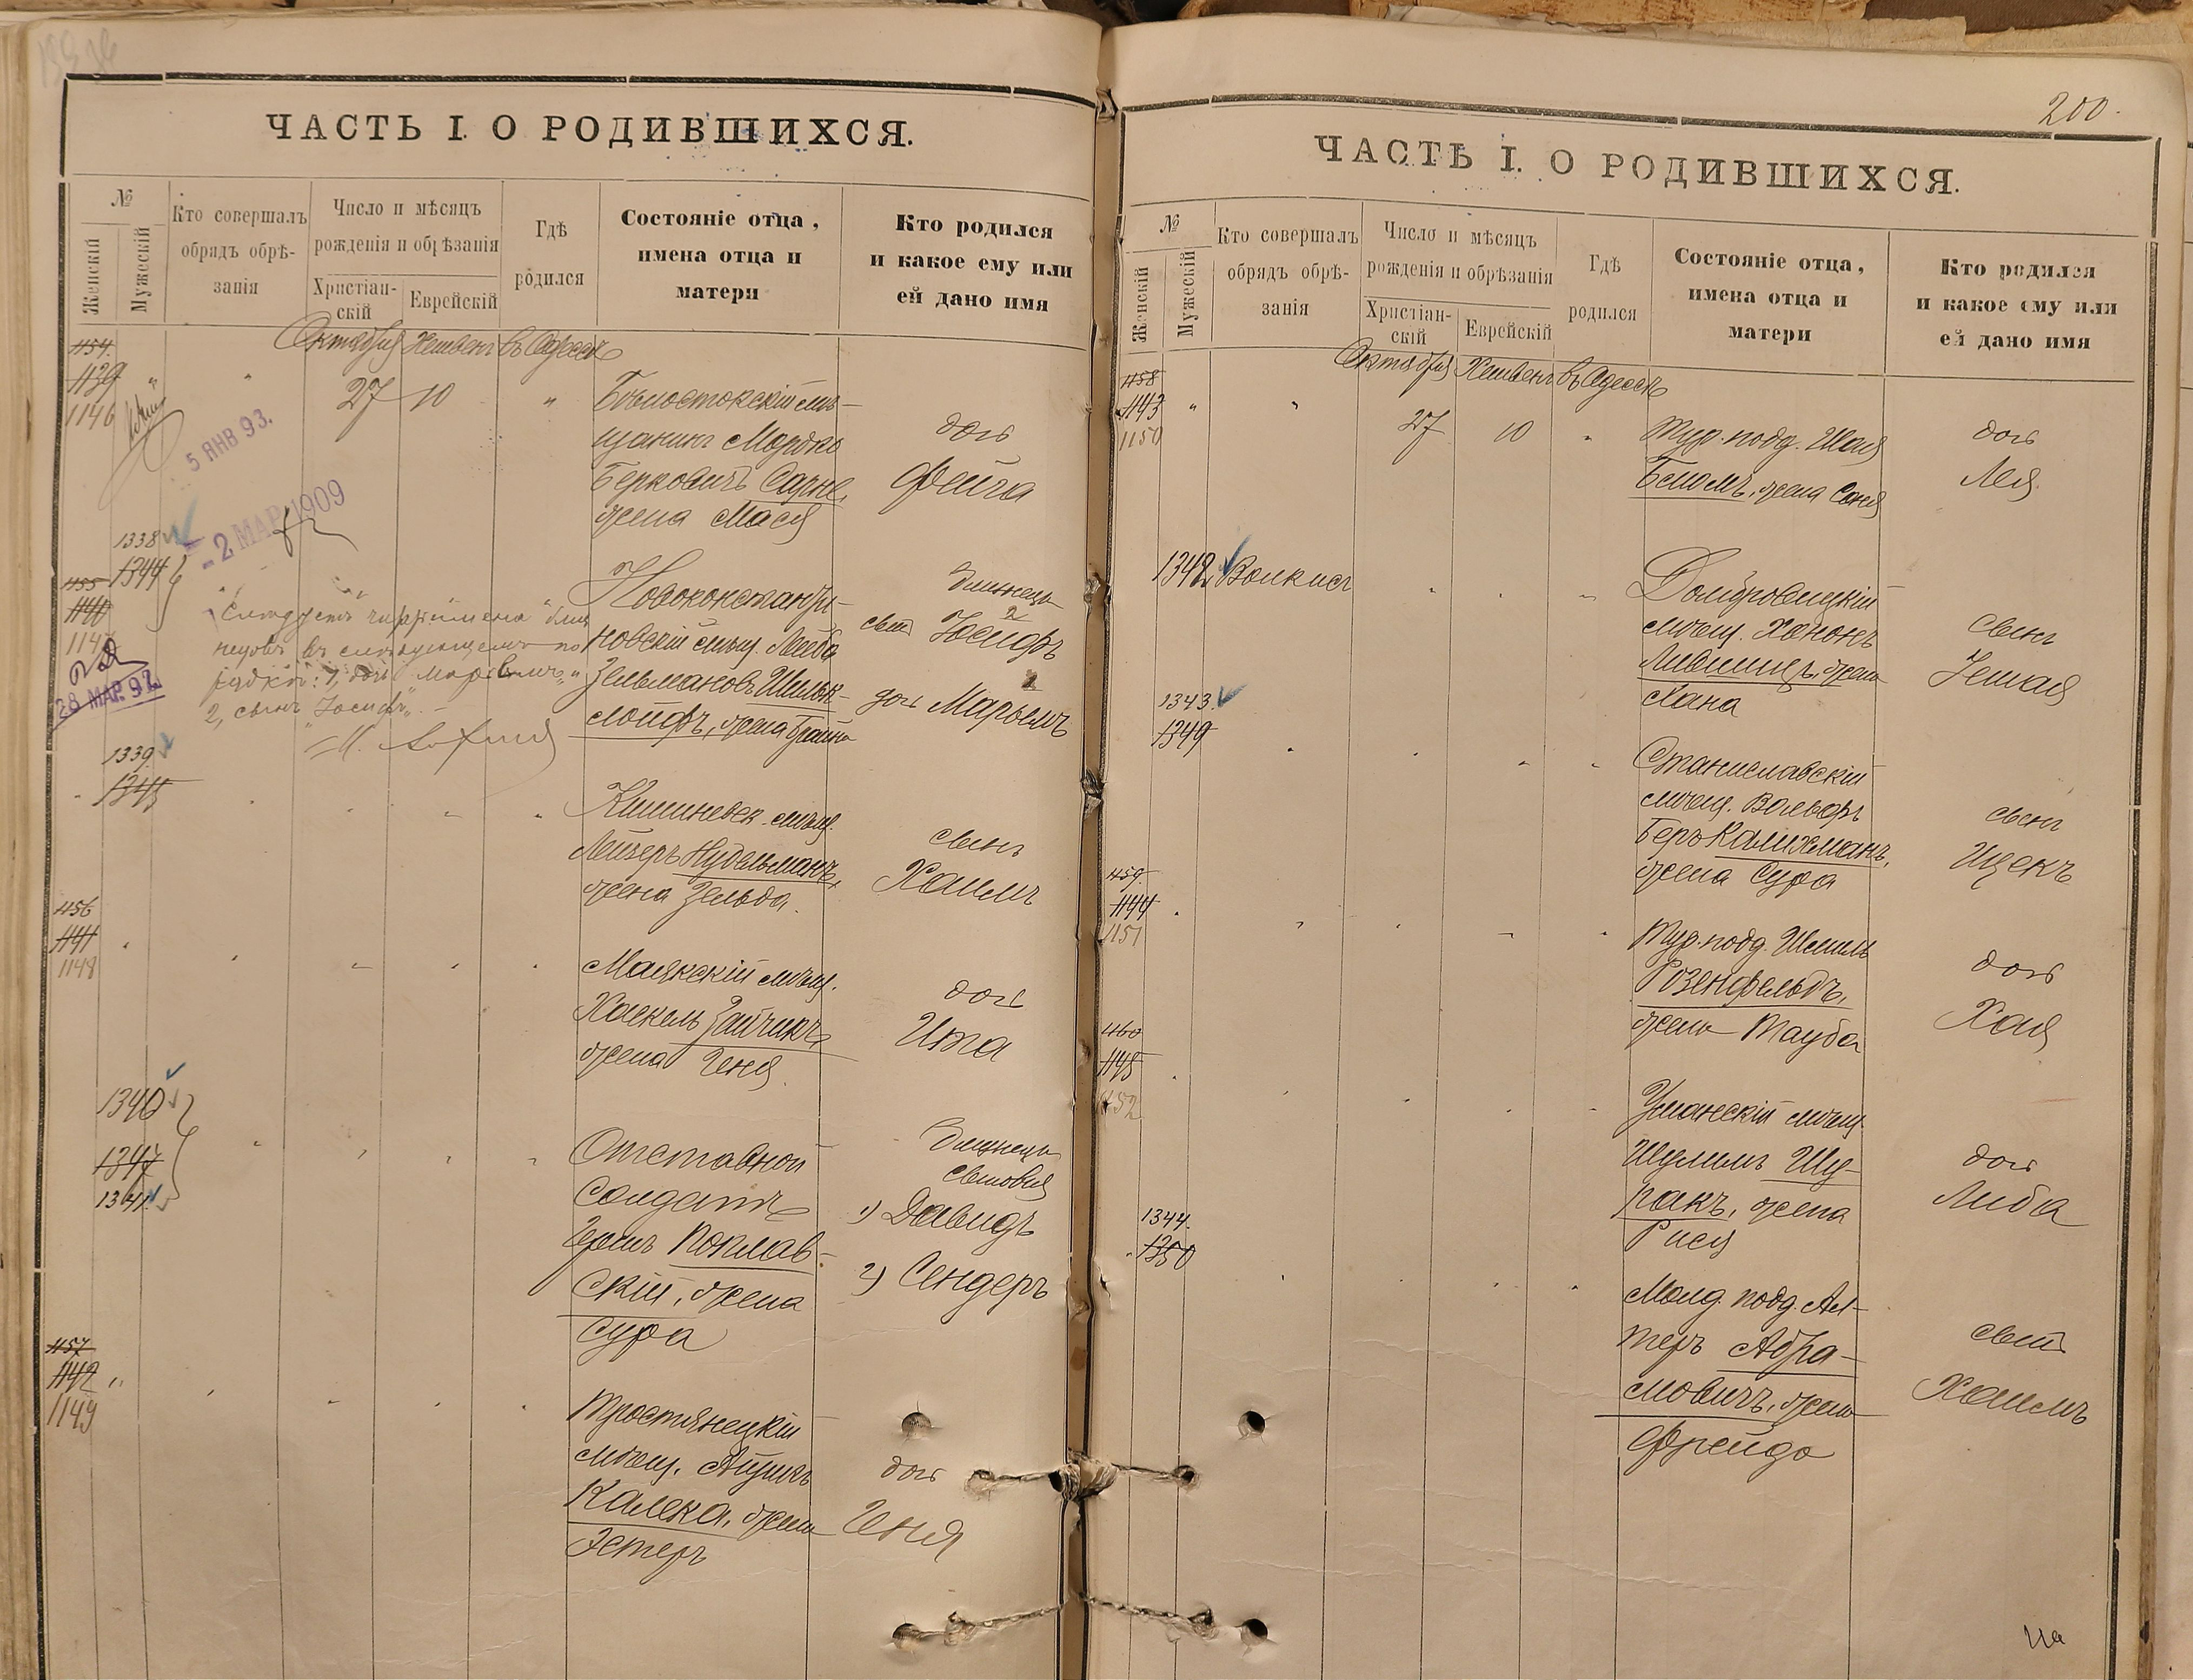 ЧАСТЬ I. О РОДИВШИХСЯ.
№
Женскій
Мужескій
Кто совершалъ
обрядъ обрѣ-
занія
Число и мѣсяцъ
рожденія и обрѣзанія
Христіан-
скій
Еврейскій
Гдѣ
родился
Состояніе отца,
имена отца и
матери
Кто родился
и какое ему или
ей дано имя
Октября Хешвенъ въ Одессѣ
1154.
1139
1146
27 10
5 ЯНВ 93.
Бѣлостокскій мѣ-
щанинъ Мордко
Берковичъ
жена Мася
дочь
Фейга
- 2 МАР 1909
1338
1344
1155
1140
1147
28 МАР 92
Слѣдуетъ близ
нецовъ въ слѣдующемъ по
рядкѣ: 1, дочь Марьемъ,
2, сынъ Іосифъ
Новоконстанти-
новскій мѣщ. Лейба
Зельмановъ Шильк-
лойфъ, жена
близнецы
сынъ Іосифъ
2
дочь Марьемъ
1339
1345
Кишиневск. мѣщ.
Лейзеръ Нудельманъ,
жена Зельда.
сынъ
Хаимъ
1156
1141
1148
Маякскій мѣщ.
Хаскель Зайчикъ
жена Геня.
дочь
Ита
1340
1347
1341
Отставной
солдатъ
Гершъ Поклав-
скій, жена
Сура
близнецы
сыновья
1) Давидъ
2) Сендеръ
1157
1142
1149
Тростянецкій
мѣщ.
Калека, жена
Эстеръ
дочь
Геня
200.
ЧАСТЬ I. О РОДИВШИХСЯ.
№
Женскій
Мужескій
Кто совершалъ
обрядъ обрѣ-
занія
Число и мѣсяцъ
рожденія и обрѣзанія
Христіан-
скій
Еврейскій
Гдѣ
родился
Состояніе отца,
имена отца и
матери
Кто родился
и какое ему или
ей дано имя
Октября Хешвенъ въ Одессѣ
1158
1143
1150
27 10
Тур. подд. Шая
жена Соня
дочь
Лея
1342
Домбровицкій
мѣщ. Хононъ
Лившицъ, жена
Хана
сынъ
1343.
1349
Станиславскій
мѣщ. Вольфъ
Беръ Калихманъ,
жена Сура
сынъ
Ицекъ
1159
1144
1151
Тур. подд. Шмиль
Розенфельдъ,
жена Тауба
дочь
Хая
1160
1145
1152
Уманскій мѣщ.
Шулимъ Шу-
ракъ, жена
Рися
дочь
Либа
1344.
1350
Молд. подд. Ал-
теръ Абра-
мовичъ, жена
Фрейда
сынъ
Хаимъ